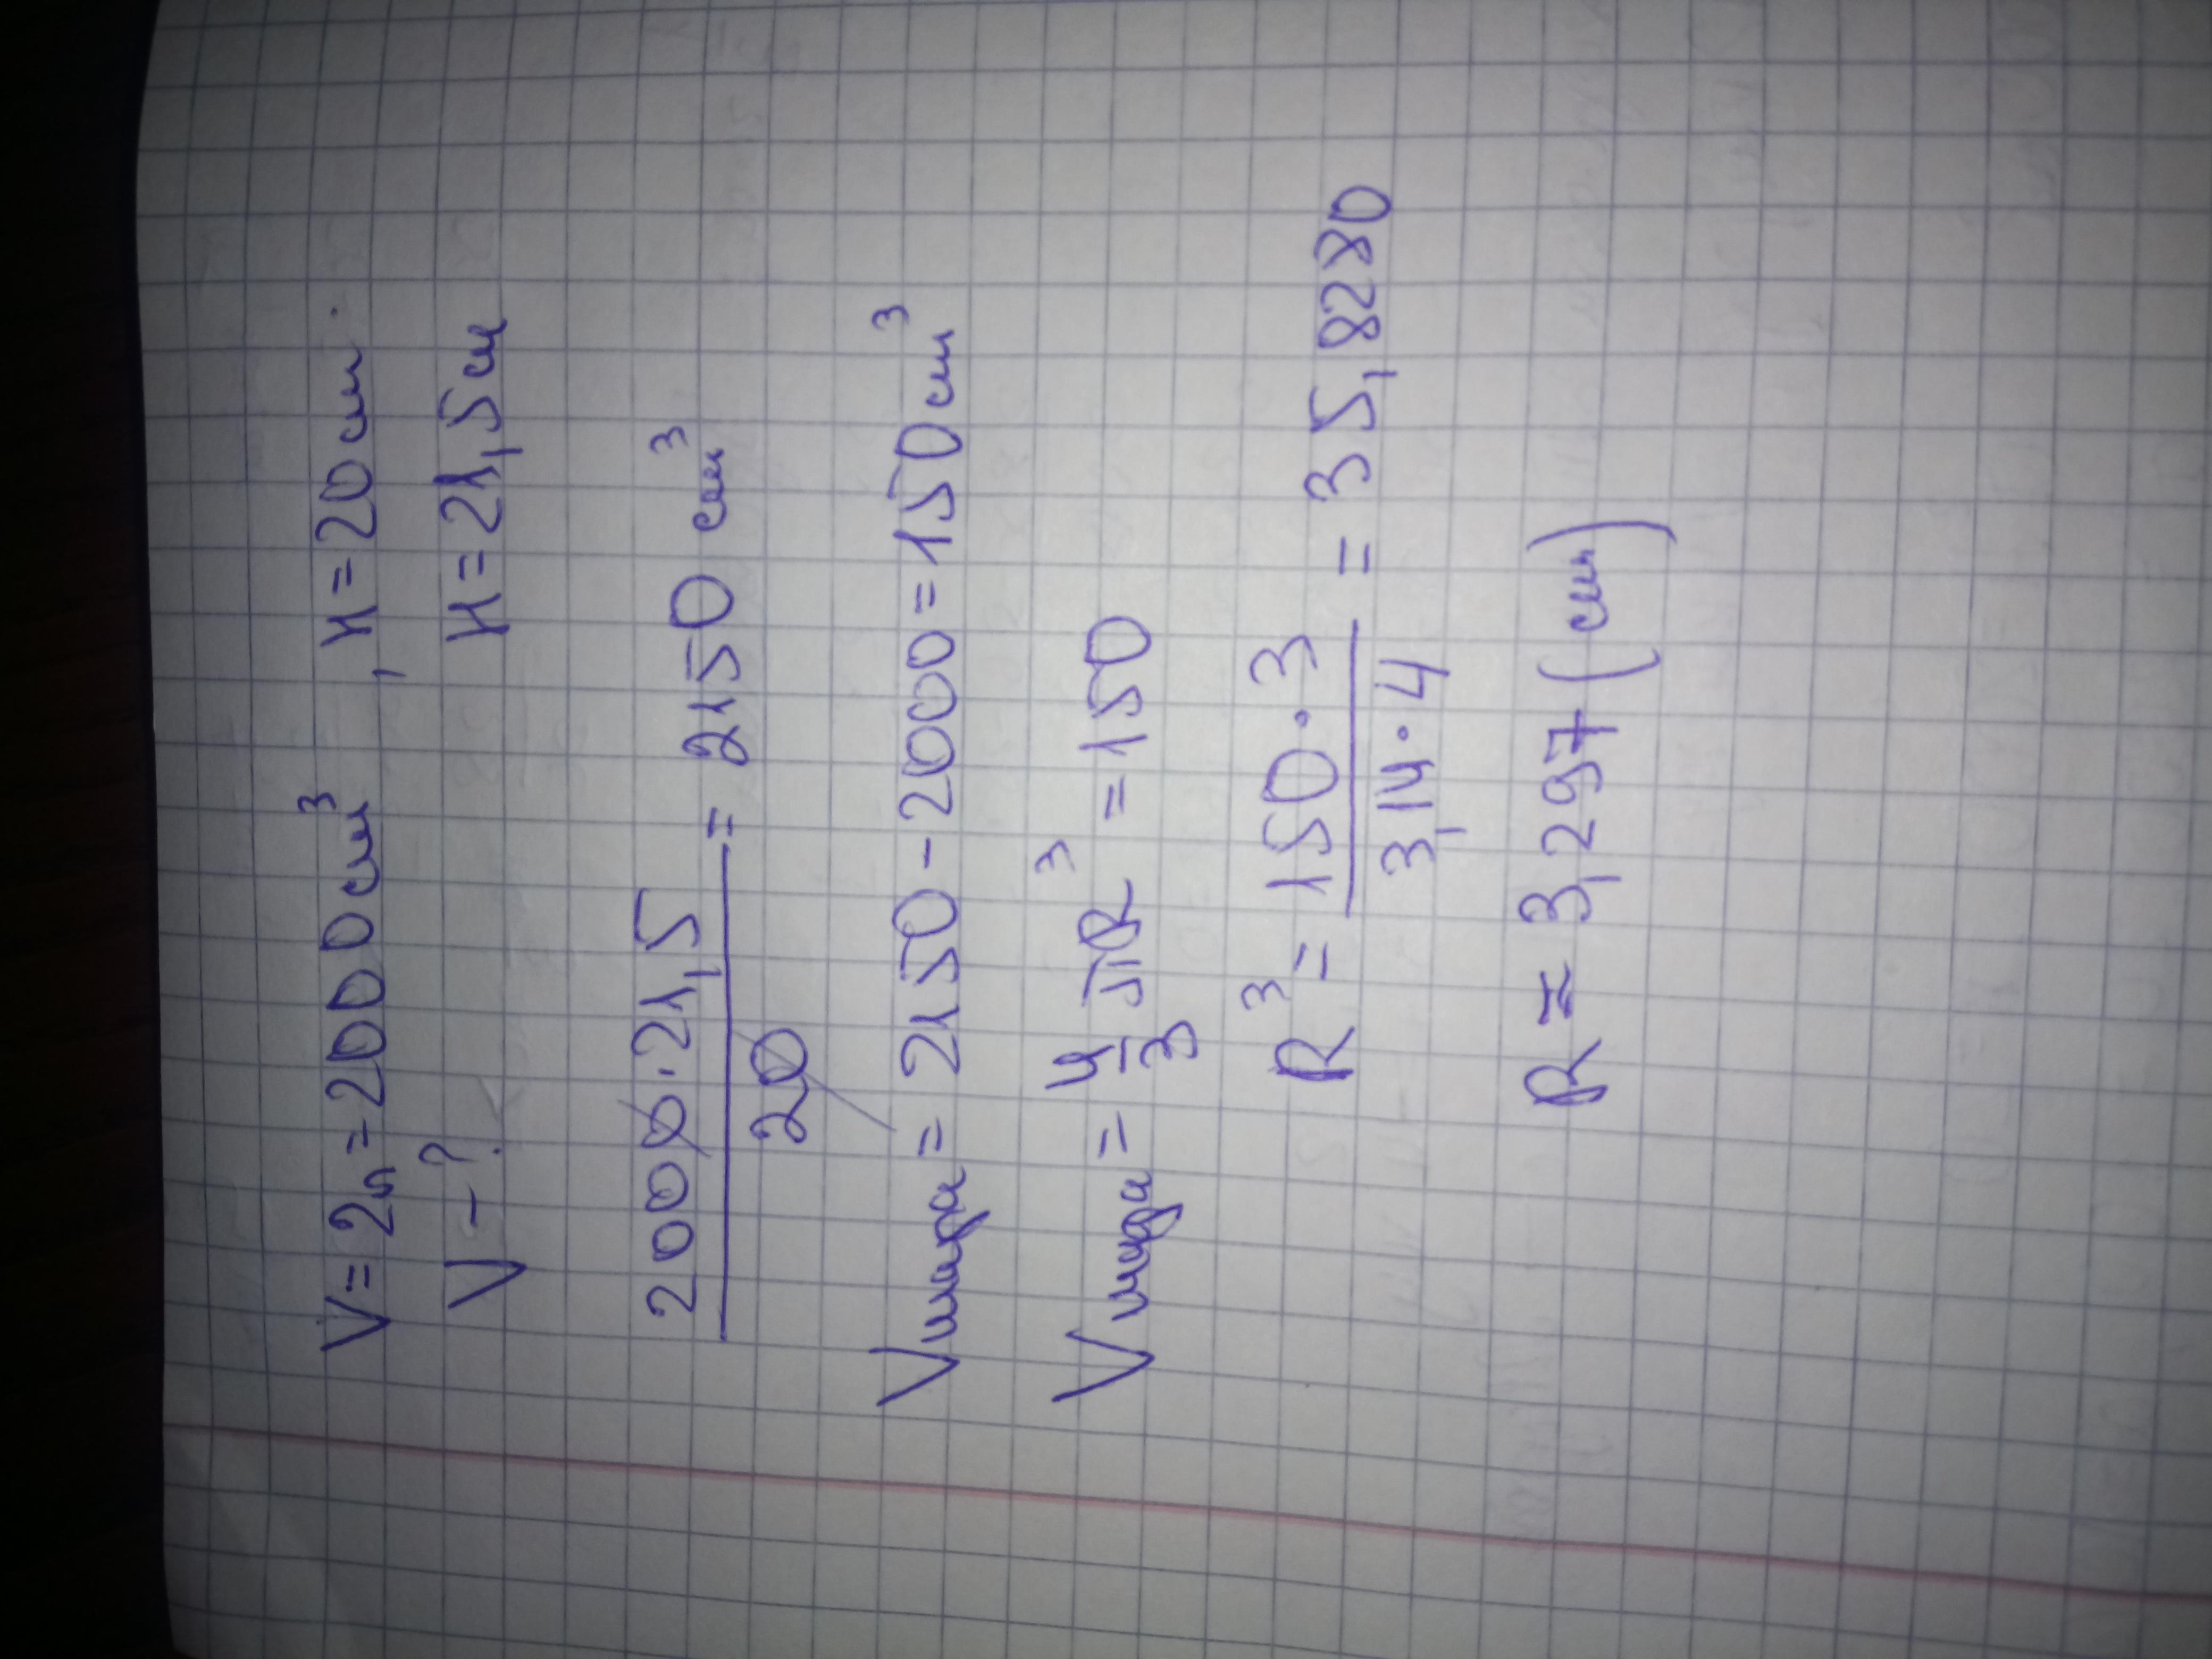 V=2л=2000см³, H=20см.
V-? H=21,5см
2000·21,5
/20 = 2150 см³
Vшара=2150-2000=150см³
Vшара=4/3 πR³=150
R³=150·3/3,14·4=35,8280
R=3,297(см)